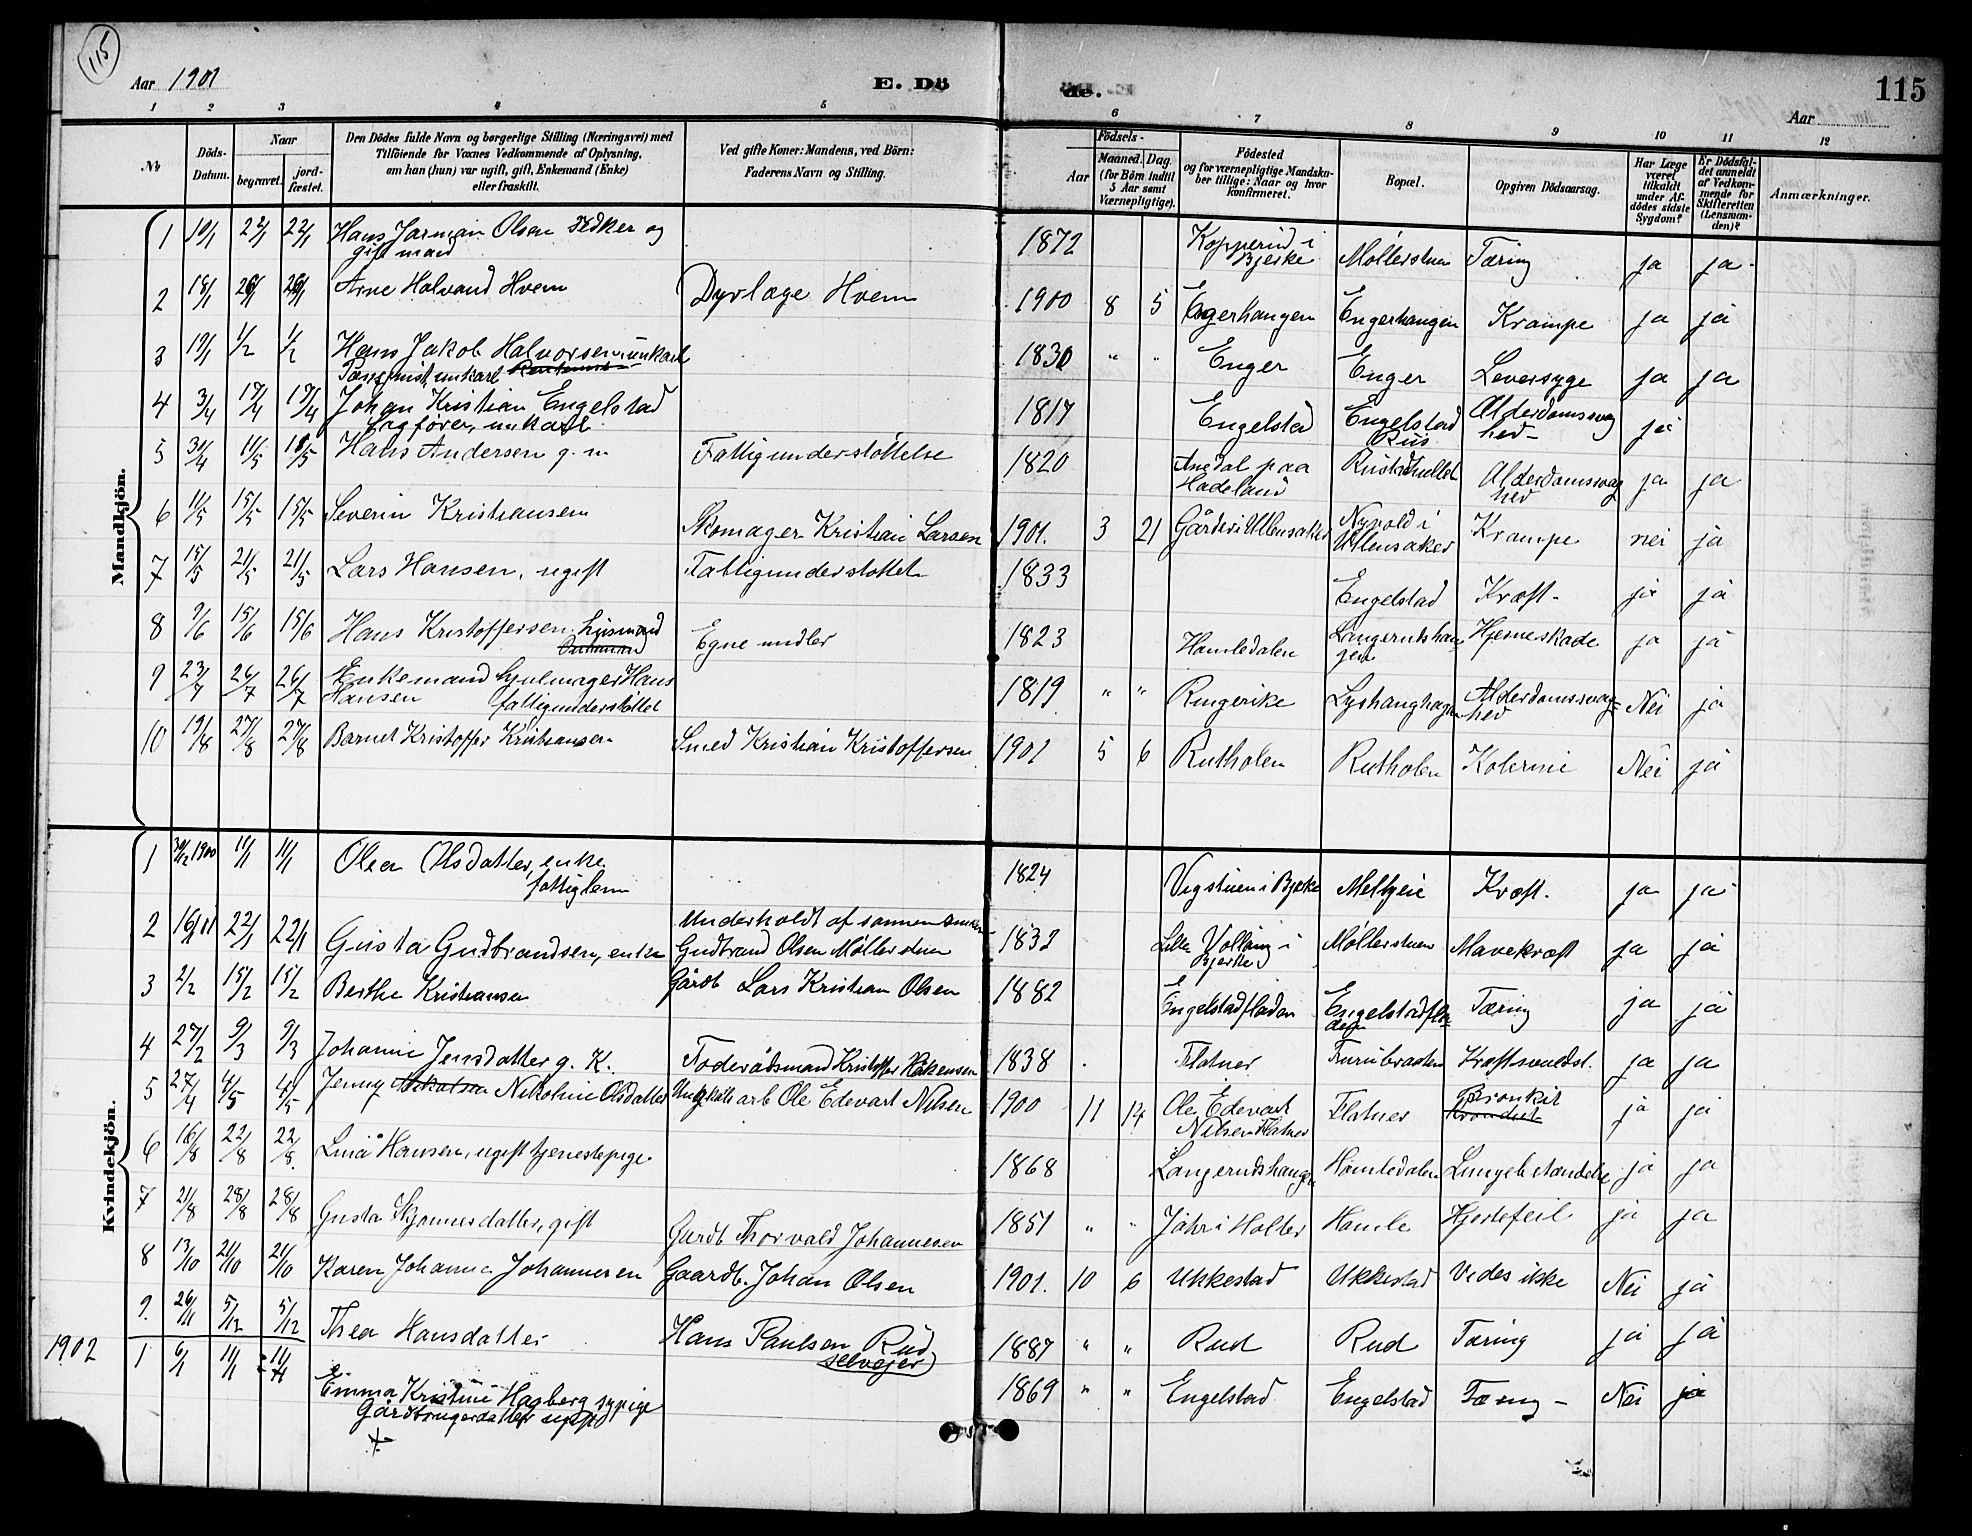 115
Aar 1901
E. Dö
de.
Aar
115
1 2 3 4 5 6 7 8 9 10 11 12
No
Döds-Datum.
Naar
begravet.
jord-fæstet.
Den Dödes fulde Navn og borgerlige Stilling (Næringsvei) med
Tilföiende for Voxnes Vedkommende af Oplysning,
om han (hun) var ugift, gift, Enkemand (Enke)
eller fraskilt.
Ved gifte Koner: Mandens, ved Börn:
Faderens Navn og Stilling.
Födsels-
Aar
Maaned. Dag.
(for Börn indtil
5 Aar samt
Værnepligtige).
Födested
og for værnepligtige Mandska-
ber tillige: Naar og hvor
konfirmeret.
Bopæl.
Opgiven Dödsaarsag.
Har Læge
været
tilkaldt
under Af-
dödes sidste
Sygdom?
Er Dödsfal-
det anmeldt
af Vedkom-
mende for
Skifteretten
(Lensman-
den)?
Anmærkninger.
Mandkjön.
1 10/1 22/1 22/1 Hans Jarman Olsen og 1872 Kopperud i Møllerstuen Tæring ja ja
gift mand Bjerke
2 18/1 26/1 26/1 Arne Halvand Hvem Dyrlæge Hvem 1900 8 5 Engerhaugen Engerhaugen Krampe ja ja
3 19/1 1/2 1/2 Hans Jakob Halvorsen unkarl 1830 " " Enger Enger Leversyge ja ja
unkarl
4 3/4 19/4 19/4 Johan Kristian Engelstad 1817 Engelstad Engelstad Alderdomssvag ja
unkarl hed
5 30/4 11/5 11/5 Hans Andersen g. m Fattigunderstøttelse 1820 paa Alderdomssvag ja ja
Hadeland hed
6 11/5 15/5 15/5 Severin Kristiansen Skomager Kristian Larsen 1901. 3 21 Gårder i Ullensaker Nyvold i Krampe nei ja
Ullensaker
7 15/5 21/5 21/5 Lars Hansen, ugift Fattigunderstøttet 1833 Engelstad Kræft ja ja
8 9/6 15/6 15/6 Hans Kristoffersen, husmand Egne midler 1823 Hamledalen Langerudshau Hjerneskade ja ja
gen
9 23/7 26/7 26/7 Enkemand hjulmager Hans 1819 " " Ringerike Lyshaughagen Alderdomssvag- Nei ja
Hansen fattigunderstøttet hed
10 19/8 27/8 27/8 Barnet Kristoffer Kristiansen Smed Kristian Kristoffersen 1901 5 6 Rutholen Rutholen Kolerine Nei ja
Kvindekjön.
1 30/12 1900 11/1 11/1 Olea Olsdatter, enke 1824 Vigstuen i Bjerke Kræft. ja ja
fattiglem
2 16/1 01 22/1 22/1 Gusta Gudbrandsen, enke Underholdt af sønnen 1832 Lille Volling i Møllerstuen Mavekræft ja ja
Gudbrand Olsen Møllerstuen Bjerke
3 2/2 15/2 15/2 Berthe Kristiansen Gårdb Lars Kristian Olsen 1882 Engelstadfladen Engelstadfla- Tæring ja ja
den
4 27/2 9/3 9/3 Johanne Jensdatter g. K. Føderådsmand Kristoffer Håkensen 1838 Flatner Furubraaten ja ja
5 27/4 4/5 4/5 Jenny Nikoline Olsdatter arb Ole Edevart Nilsen 1900 11 14 Ole Edevart Flatner Bronkit ja ja
Nilsen Flatner
6 16/8 22/8 22/8 Lina Hansen, ugift tjenestepige 1868 Langerudshaugen Hamledalen Lungebetændelse ja ja
7 21/8 28/8 28/8 Gusta gift Gårdb Thorvald Johannesen 1851 " " Jahr i Holter Hamle Hjertefeil ja ja
8 13/10 21/10 21/10 Karen Johanna Johannesen Gaardb. Johan Olsen 1901. 10 6 Ukkestad Ukkestad Vides ikke Nei ja
9. 26/11 5/12 5/12 Thea Hansdatter Hans Paulsen Rud 1887 " " Rud Rud Tæring ja ja
selveier
1902 1 6/1 11/1 11/1 Emma Kristine Hagberg sypige 1869 " " Engelstad Engelstad Tæring Nei ja
Gårdbrugerdatter ugift